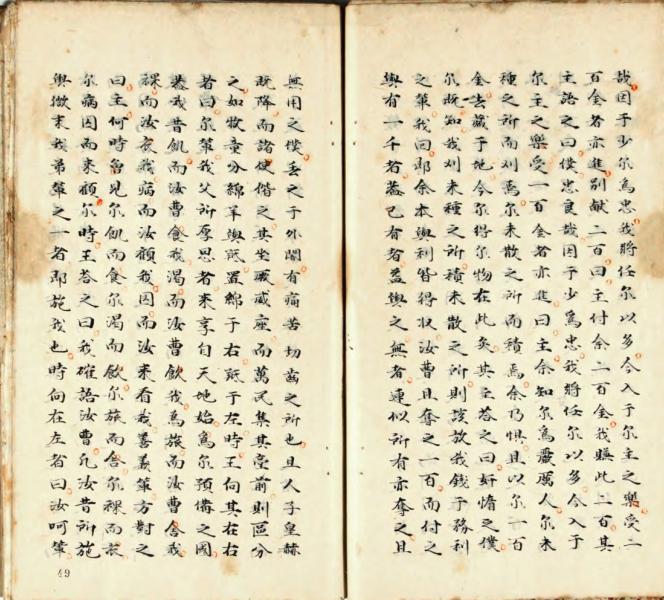 哉因于少尔爲忠我將任尔以多今入于尔主之樂受二
百金者亦進別獻二百曰主付余二百金我賺此二百其
主語之曰僕忠良哉因于少爲忠我將任尔以多今入于
尔主之樂受一百金者亦進曰主余知尔爲嚴厲人尔未
種之所而刈焉尔未散之所而積焉余乃惧且以尔一百
金去藏于地今尔得尔物在此矣其主答之曰奸惰之僕
尔既知我刈未種之所積未散之所則該放我錢于務利
之輩我回即余本與利皆得收汝曹且奪之一百而付之
與有一千者葢已有者益與之無者連似所有亦奪之且
無用之僕丢之于外闇有痛苦切齒之所也且人子皇赫
既降而諸使偕之其坐厥威座而萬民集其臺前則區分
之如牧童分綿羊與羝置綿于右羝于左時王向其在右
者曰尔輩我父所厚恩者來享自天地始爲尔預備之國
葢我昔飢而汝曹食我渴而汝曹飲我爲旅而汝曹舍我
裸而汝衣我病而汝顧我囚而汝來看我善義輩方對之
曰主何時曾見尔飢而食尔渴而飲尔旅而舍尔裸而衣
尔病囚而來顧尔時王答之曰我確語汝曹凢汝昔所施
與微末我弟輩之一者即施我也時向在左者曰汝呵輩
49